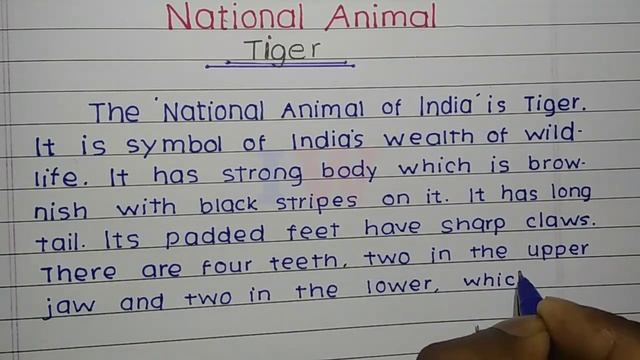 National Animal
Tiger
The 'National Animal of India' is Tiger.
It is symbol of India's wealth of wild-
life. It has strong body which is brow-
nish with black stripes on it. It has long
tail. Its padded feet have sharp claws.
There are four teeth, two in the upper
jaw and two in the lower, whic